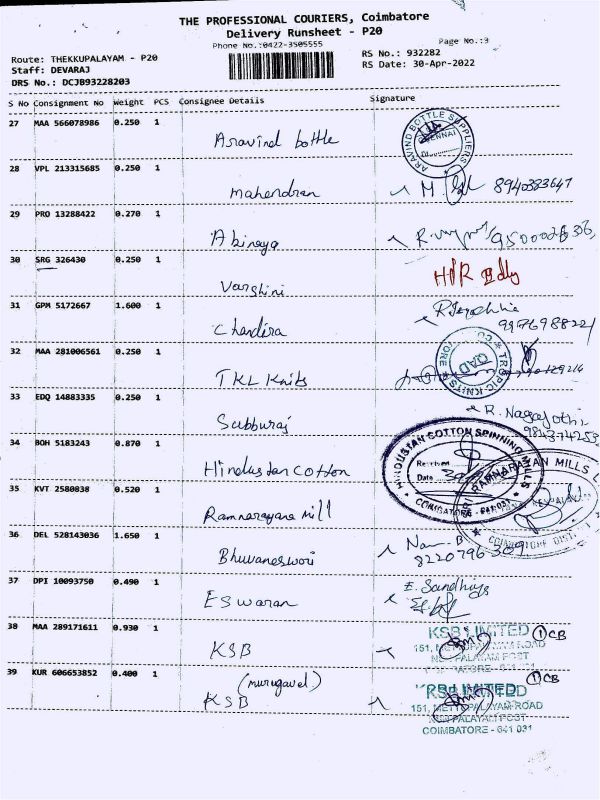 THE PROFESSIONAL COURIERS, Coimbatore
Delivery Runsheet - P20
Phone No.:0422-3505555
Page No.:3
Route: THEKKUPALAYAM - P20
RS No.: 932282
Staff: DEVARAJ
RS Date: 30-Apr-2022
DRS No.: DCJB93228203
S No Consignment No Weight PCS Consignee Details Signature
27 MAA 566078986 0.250 1
Aravind bottle
ARAVIND BOTTLE SUPPLIERS CHENNAI
28 VPL 213315685 0.250 1
mahendran M 8940383647
29 PRO 13288422 0.270 1
Abinaya
30 SRG 326430 0.250 1
Varshini
31 GPM 5172667 1.600 1
Chandira
32 MAA 281006561 0.250 1
TKL Knits
TROPIC KNITS QAD
33 EDQ 14883335 0.250 1
Subburaj R.
34 BOH 5183243 0.870 1
Hindustan cotton
HINDUSTAN COTTON SPINNING MILLS
Received
Date
COIMBATORE - 641 031
35 KVT 2580838 0.520 1
Ramnarayana mill
RAMNARAYAN MILLS
36 DEL 528143036 1.650 1
Bhuvaneswari
8220796309
37 DPI 10093750 0.490 1
Eswaran E.
38 MAA 289171611 0.930 1
KSB
KSB LIMITED 1 CB
39 KUR 606653852 0.400 1
(murugavel)
KSB
LIMITED 1 CB
151, METTUPALAYAM ROAD
COIMBATORE - 641 031